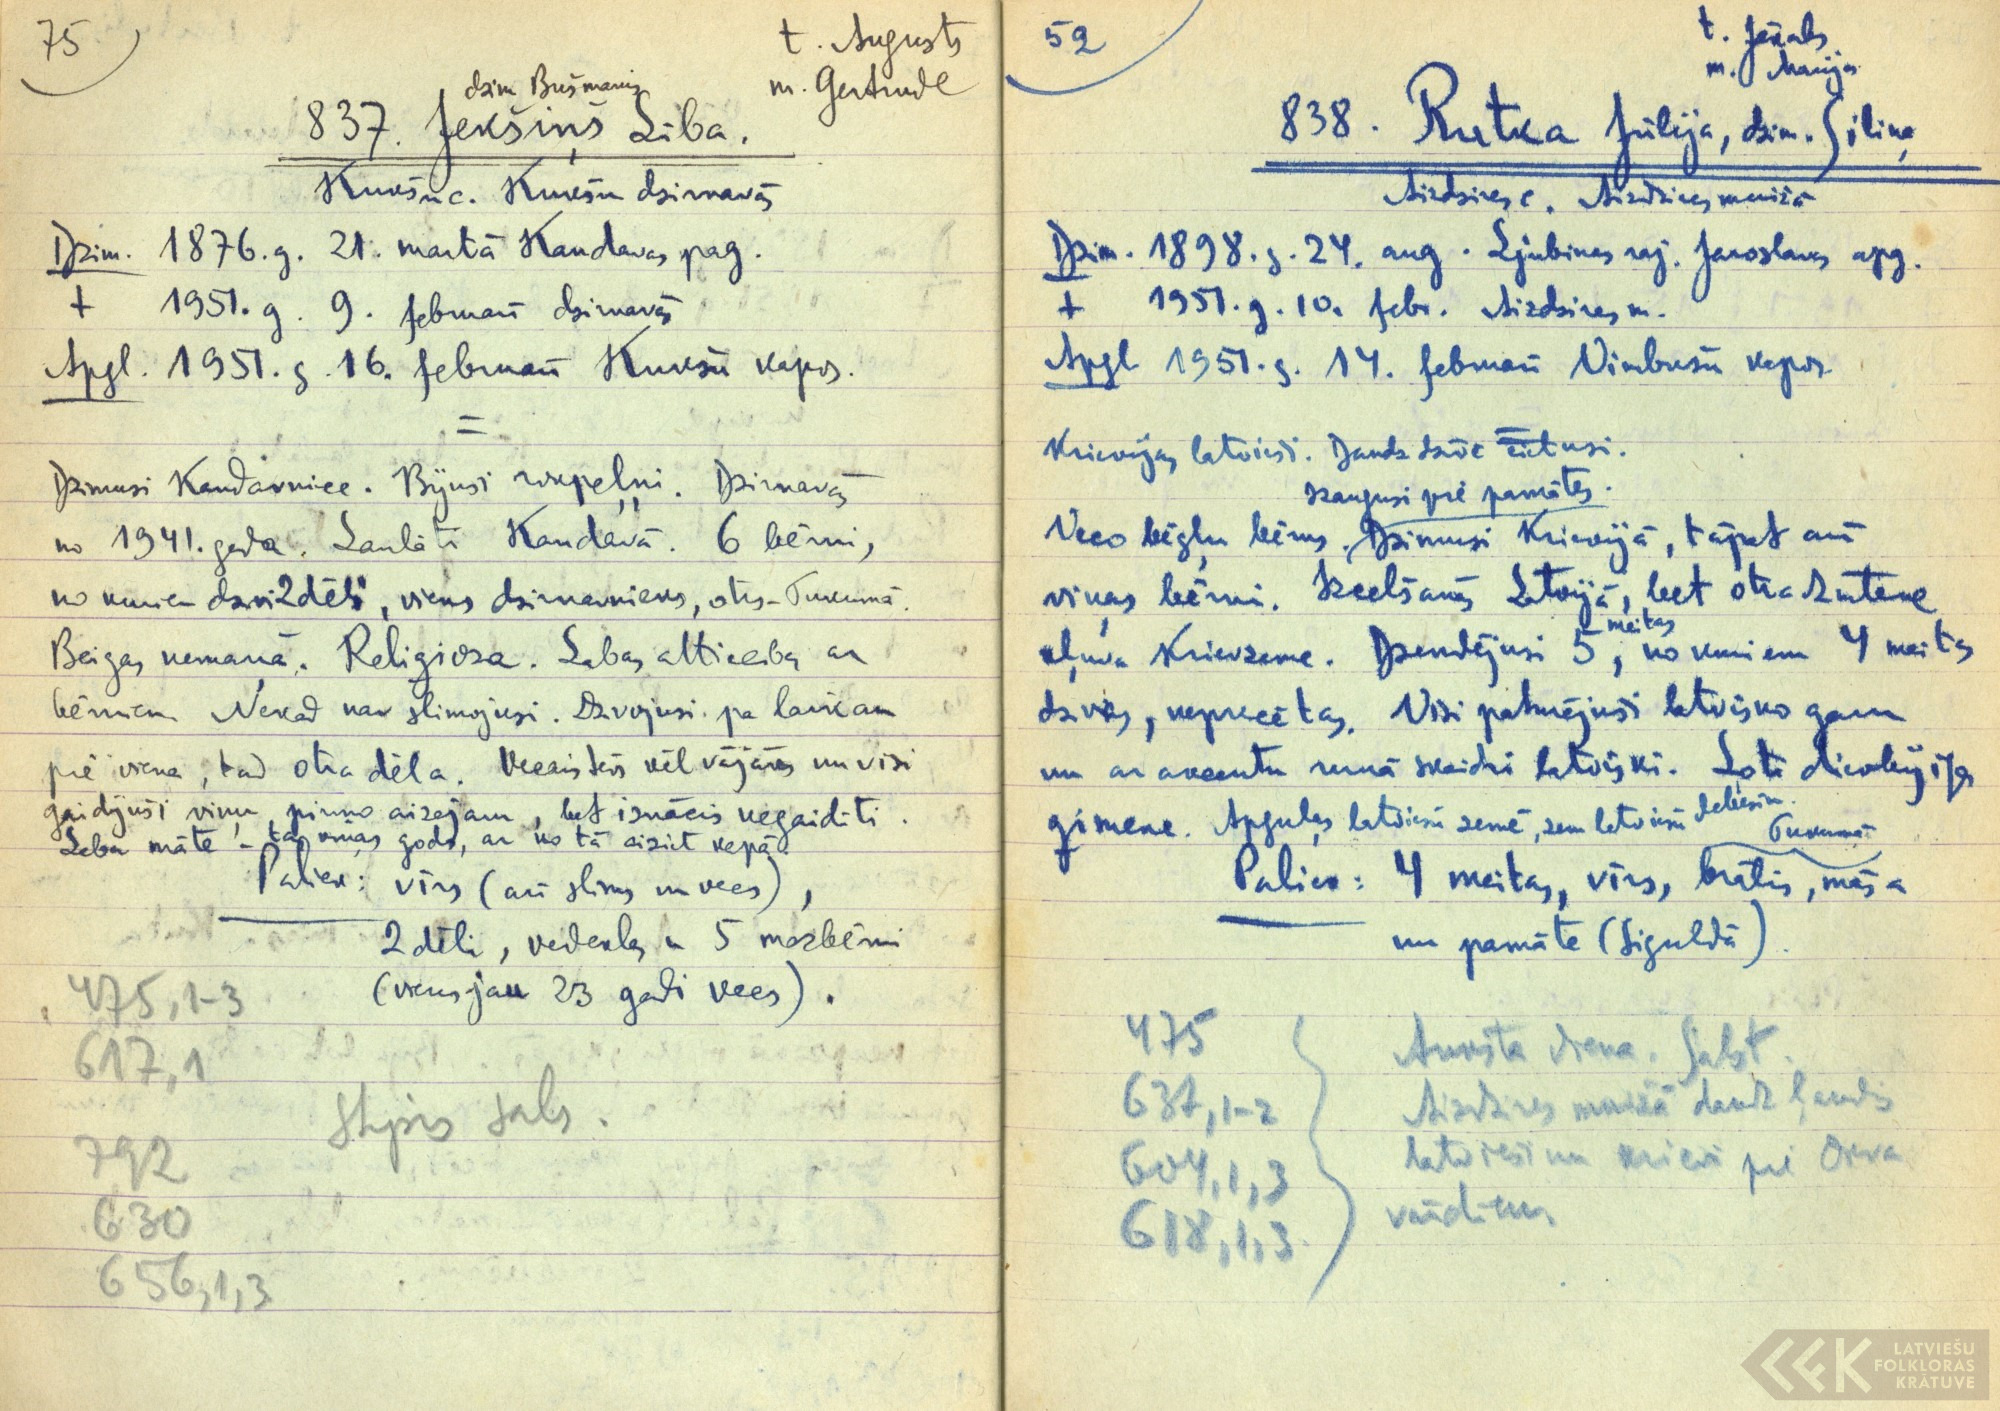 75
t. Augusts
m. Gertrude
dzim Bušmanis
837. Jekšiņš Lība.
Kukšu c. Kukšu dzirnavās
Dzim. 1876. g. 21. martā Kandavas pag.
+ 1951. g. 9. februarī dzirnavās
Apgl. 1951. g. 16. februarī Kukšu kapos.
=
Dzimusi Kandavniece. Bijusi rokpeļņi. Dzirnavās
no 1941. gada. Laulāti Kandavā. 6 bērni,
no kuriem dzīvi 2 dēli, viens dzirnavnieks, otrs - Tukumā.
Beigas nemaņā. Religioza. Labas attiecības ar
bērniem. Nekad nav slimojusi. Dzīvojusi pa laikam
pie viena, tad otra dēla. un visi
gaidījuši viņu pirmo aizejam, bet iznācis negaidīti.
Laba māte - tas viņas gods, ar no tā aiziet kapā.
Paliek: vīrs (arī slims un vecs),
2 dēli, vedeklas u 5 mazbērni
(viens jau 23 gadi vecs).
475,1-3
617,1
Stiprs sals.
792
630
656,1,3
52
t. Jēkabs
m. Marija
838. Rutka Jūlija, dzim. Siliņa
Aizdzires c. Aizdzires muižā
Dzim. 1898. g. 24. aug. Ljubinas raj. Jaroslavas apg.
+ 1951. g. 10. febr. Aizdzires m.
Apgl 1951. g. 14. februarī Vimbušu kapos
=
Krievijas latvieši. Daudz dzīvē cietusi.
izaugusi pie pamātes.
Veco bēgļu bērns. Dzimusi Krievijā, tāpat arī
viņas bērni. Izcelšanās Latvijā, bet otra dzimtene
kļuva Krievzeme. Dzemdējusi 5 meitas, no kuriem 4 meitas
dzīvas, neprecētas. Visi paturējuši latvisko garu
un ar akcentu runā skaidri latviski. Ļoti dievbijīga
ģimene. Apguļas latviešu zemē, zem latviešu debesīm.
Tukumā
Paliek: 4 meitas, vīrs, brālis, māsa
un pamāte (Siguldā).
475
637,1-2
604,1,3
618,1,3.
Auksta diena. Salst.
Aizdzires muižā daudz ļaudis
latvieši un krievi pie Dieva
vārdiem
LATVIEŠU
FOLKLORAS
KRĀTUVE